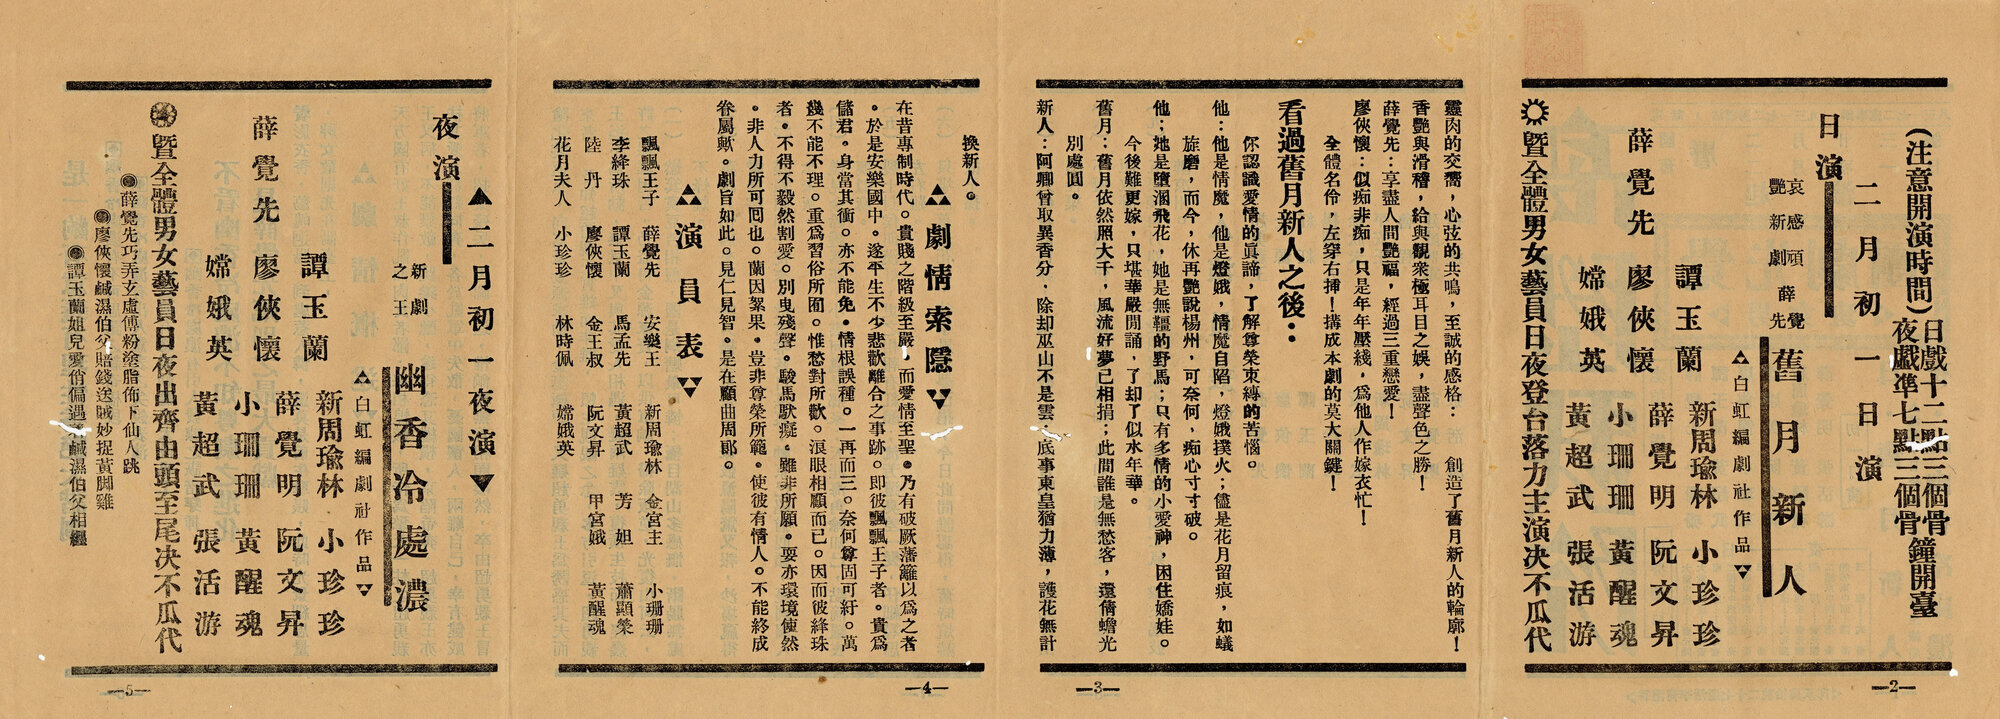 (注意開演時間)日戲十二點三個骨鐘開臺
夜戲準七點三個骨
二月初一日演
日演
哀感頑艷新劇
薛覺先
舊月新人
白虹編劇社作品
薛覺先
譚玉蘭
廖俠懷
嫦娥英
新周瑜林
薛覺明
小珊珊
黃超武
小珍珍
阮文昇
黃醒魂
張活游
暨全體男女藝員日夜登台落力主演决不瓜代
—2—
靈肉的交響,心弦的共鳴,至誠的感格: 創造了舊月新人的輪廓!
香艷與滑稽,給與觀衆極耳目之娛,盡聲色之勝!
薛覺先:享盡人間艷福,經過三重戀愛!
廖俠懷:似痴非痴,只是年年壓綫,爲他人作嫁衣忙!
全體名伶,左穿右插!搆成本劇的莫大關鍵!
看過舊月新人之後:
你認識愛情的眞諦,了解尊榮束縛的苦惱。
他:他是情魔,他是燈娥,情魔自陷,燈娥撲火;儘是花月留痕,如蟻
旋磨,而今,休再艷說楊州,可奈何,痴心寸寸破。
他;她是墮溷飛花,她是無韁的野馬;只有多情的小愛神,困住嬌娃。
今後難更嫁,只堪華嚴閒誦,了却了似水年華。
舊月:舊月依然照大千,風流好夢已相捐;此間誰是無愁客,還倩蟾光
別處圓。
新人:阿卿曾取異香分,除却巫山不是雲,底事東皇猶力薄,護花無計
—3—
換新人。
劇情索隱
在昔專制時代。貴賤之階級至嚴,而愛情至聖。乃有破厥藩籬以爲之者
。於是安樂國中。遂平生不少悲歡離合之事跡。即彼飄飄王子者。貴爲
儲君。身當其衝。亦不能免。情根誤種。一再而三。奈何尊固可紆。萬
幾不能不理。重爲習俗所囿。惟愁對所歡。淚眼相顧而已。因而彼絳珠
者。不得不毅然割愛。別曳殘聲。駿馬馱癡。雖非所願。要亦環境使然
。非人力所可囘也。蘭因絮果。豈非尊榮所範。使彼有情人。不能終成
眷屬歟。劇旨如此。見仁見智。是在顧曲周郎。
演員表
飄飄王子 薛覺先 安樂王 新周瑜林 金宮主 小珊珊
李絳珠 譚玉蘭 馬孟先 黃超武 芳姐 蕭顯榮
陸丹 廖俠懷 金王叔 阮文昇 甲宮娥 黃醒魂
花月夫人 小珍珍 林時佩 嫦娥英
—4—
二月初一夜演
夜演
新劇之王
幽香冷處濃
白虹編劇社作品
薛覺先
譚玉蘭
廖俠懷
嫦娥英
新周瑜林
薛覺明
小珊珊
黃超武
小珍珍
阮文昇
黃醒魂
張活游
暨全體男女藝員日夜出齊由頭至尾决不瓜代
薛覺先巧弄玄虛傅粉塗脂佈下仙人跳
廖俠懷鹹濕伯父賠錢送賊妙捉黃脚雞
譚玉蘭姐兒愛俏偏遇着鹹濕伯父相纏
—5—